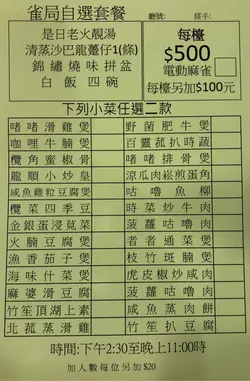 雀局自選套餐
廳號: 經手:
是日老火靚湯
清蒸沙巴龍躉仔1(條)
錦繡燒味拼盆
白飯四碗
每檯
$500
電動麻雀
每檯另加$100
下列小菜任選二款
啫啫滑雞煲 野菌肥牛煲
咖喱牛腩煲 百靈菇扒時蔬
欖角蜜椒骨 啫啫排骨煲
龍順小炒皇 涼瓜肉崧煎蛋角
咸魚雞粒豆腐煲 咕嚕魚柳
欖菜四季豆 時菜炒牛肉
金銀蛋浸莧菜 菠蘿咕嚕肉
火腩豆腐煲 者者通菜煲
漁香茄子煲 枝竹斑腩煲
海味什菜煲 虎皮椒炒咸肉
麻婆滑豆腐 菠蘿咕嚕肉
竹笙頂湖上素 咸魚蒸肉餅
北菇蒸滑雞 竹笙扒豆腐
時間:下午2:30至晚上11:00時
加人數每位另加$20